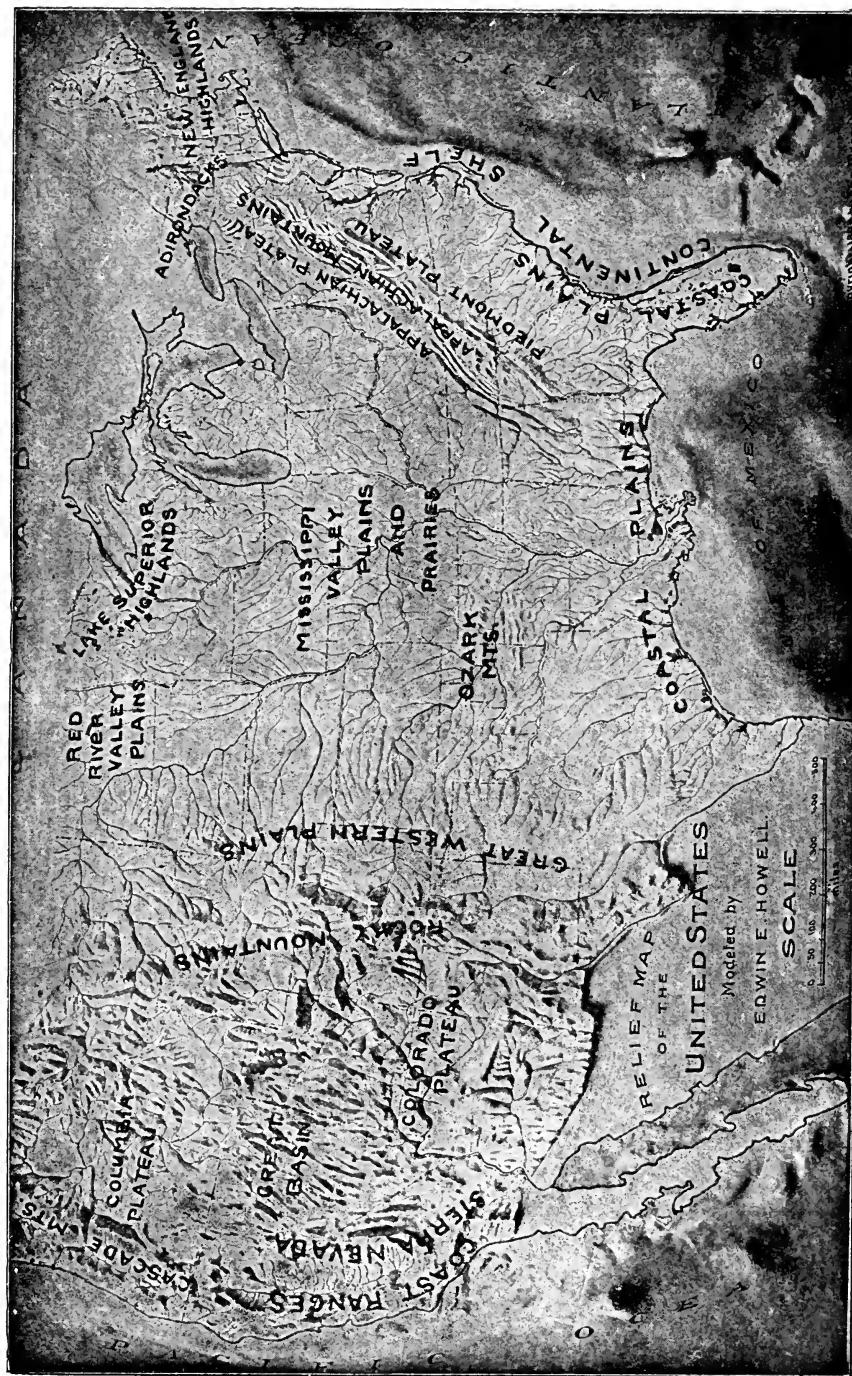 CANADA
CASCADE MTS
COLUMBIA
PLATEAU
GREAT
BASIN
SIERRA NEVADA
COAST RANGES
PACIFIC
OCEA
COLORADO
PLATEAU
ROCKY MOUNTAINS
GREAT WESTERN PLAINS
RED
RIVER
VALLEY
PLAINS
LAKE SUPERIOR
HIGHLANDS
MISSISSIPPI
VALLEY
PLAINS
AND
PRAIRIES
OZARK
MTS.
COASTAL PLAINS
ADIRONDACKS
NEW ENGLAND
HIGHLANDS
APPALACHIAN PLATEAU
APPALACHIAN MOUNTAINS
PIEDMONT PLATEAU
COASTAL PLAINS
CONTINENTAL SHELF
ATLANTIC
OCEAN
OF MEXICO
RELIEF MAP
OF THE
UNITED STATES
Modeled by
EDWIN E. HOWELL
SCALE
0 50 100 200 300 400 500
miles